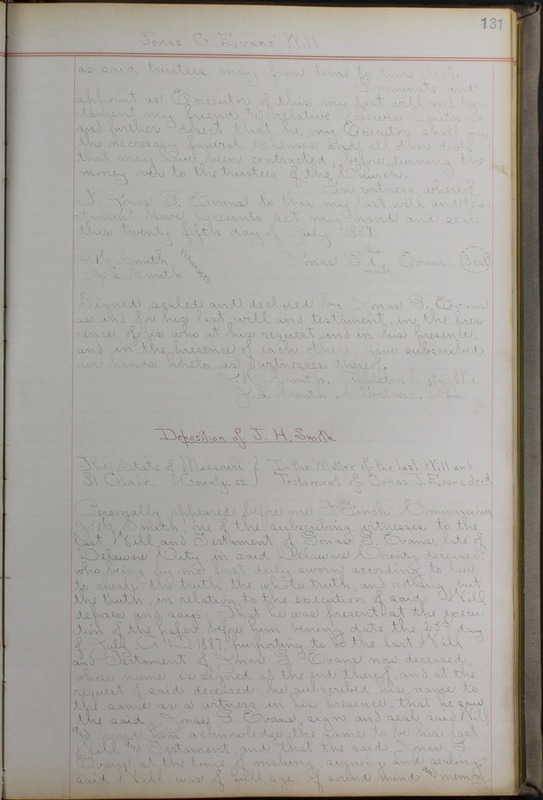 131
Jonas G. Evans' Will
as said trustees may from time to time elect.
I nominate and
appoint as Executor of this my last will and tes
tament my friend and relative Smith
and further direct that he my Executor, shall pay
the necessary funeral expenses and all other debts
that may have been contracted, before turning the
money over to the trustees of the Church.
In witness whereof,
I, Jonas G. Evans to this my last will and tes-
tament have hereunto set my hand and seal
this twenty fifth day of July 1887.
Smith Jonas G. his Evans. Seal
Smith mark
Signed, sealed and declared by Jonas G. Evans
as and for his last will and testament, in the pres
ence of us who at his request and in his presence,
and in the presence of each other, have subscribed
our hands hereto as witnesses thereof.
Smith. City Mo.
Smith
Deposition of J. H. Smith
The State of Missouri } In the Matter of the last Will and
St Clair County ss. } Testament of Jonas G. Evans decd
Personally appeared before me F. Finch, Commissioner
Smith, one of the subscribing witnesses to the
last Will and Testament of Jonas G. Evans, late of
Delaware City in said Delaware County deceased
who being by me first duly sworn according to law
to speak the truth, the whole truth, and nothing but
the truth, in relation to the execution of said Will
deposes and says: That he was present at the execu-
tion of the paper before him bearing date the 25th day
of July A. D. 1887, purporting to be the last Will
and Testament of Jonas G. Evans now deceased,
whose name is signed at the end thereof, and at the
request of said deceased, he subscribed his name to
the same as a witness in his presence; that he saw
the said Jonas G Evans sign and seal said Will
and heard him acknowledge the same to be his last
Will and Testament, and that the said Jonas G
Evans at the time of making, signing and sealing
said Will was of full age of sound mind and memory